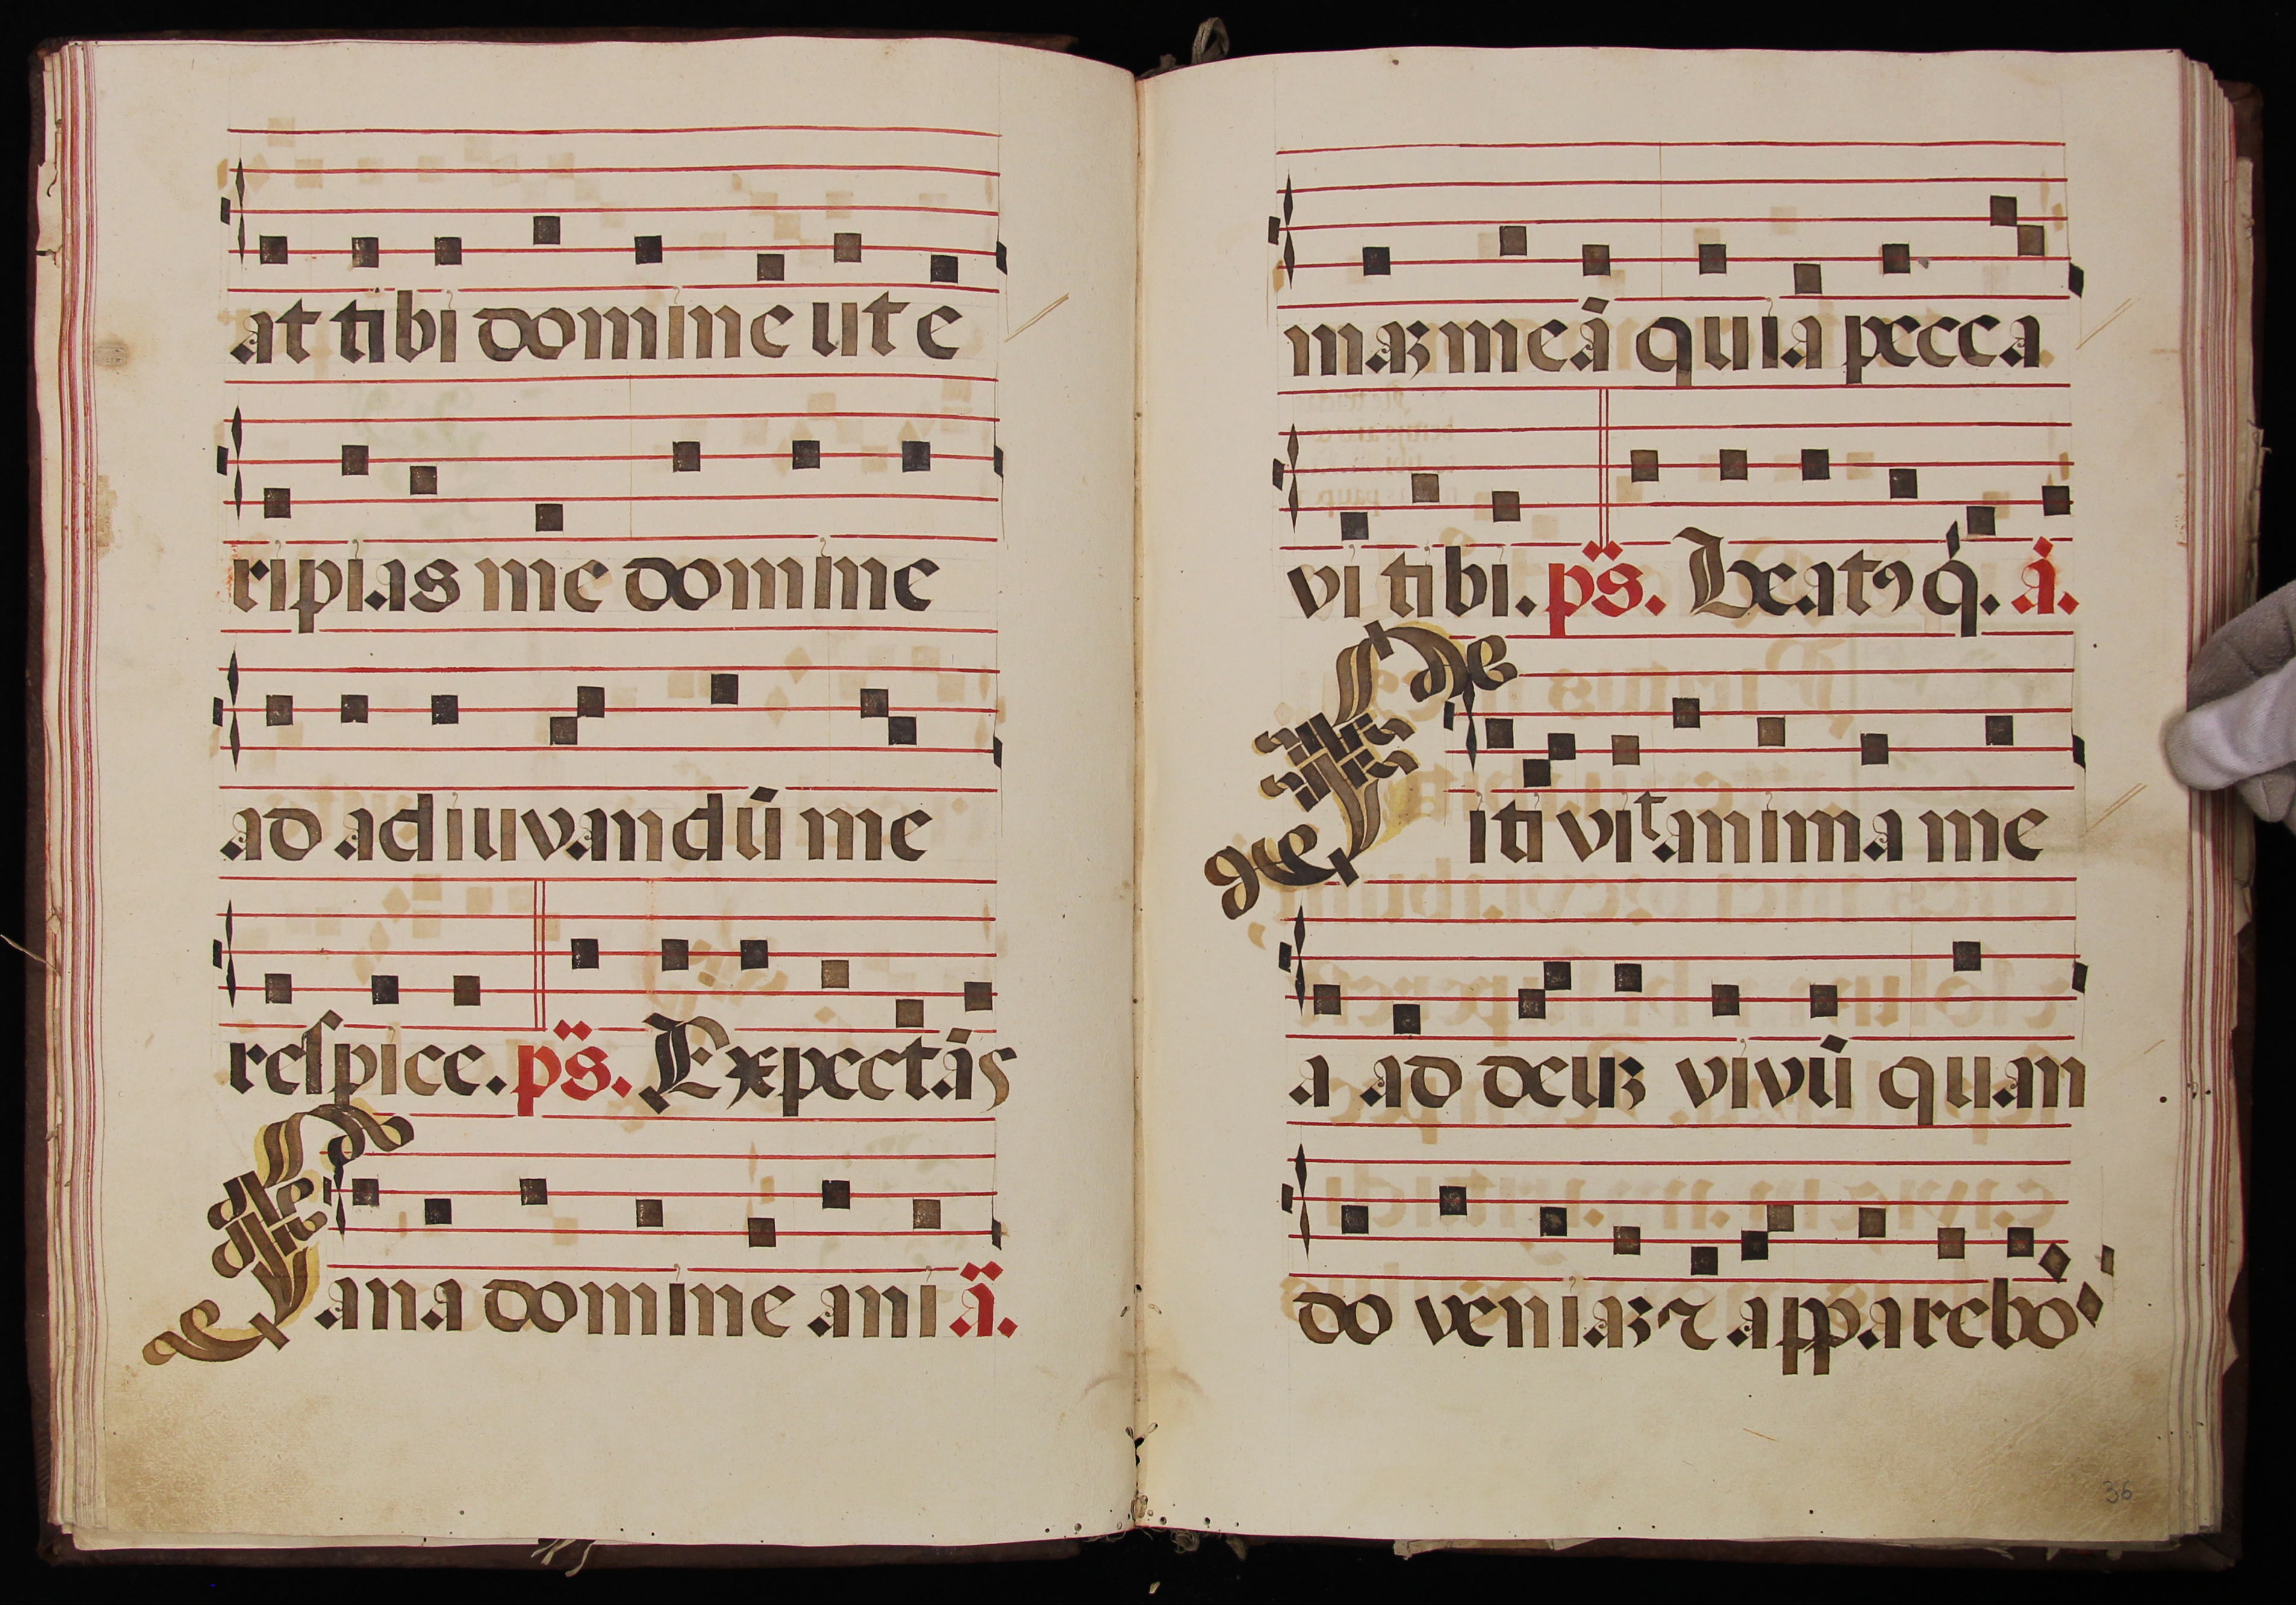 at tibi domine ut e
ripias me domine
ad adiuvandū me
respice. ps. Expectās
Sana domine ani ā.
maʒ meā quia pecca
vi tibi. ps. Beatꝰ q̇. ā.
Sitivit anima me
a ad deuʒ vivū quan
do veniaʒ ⁊ apparebo
36